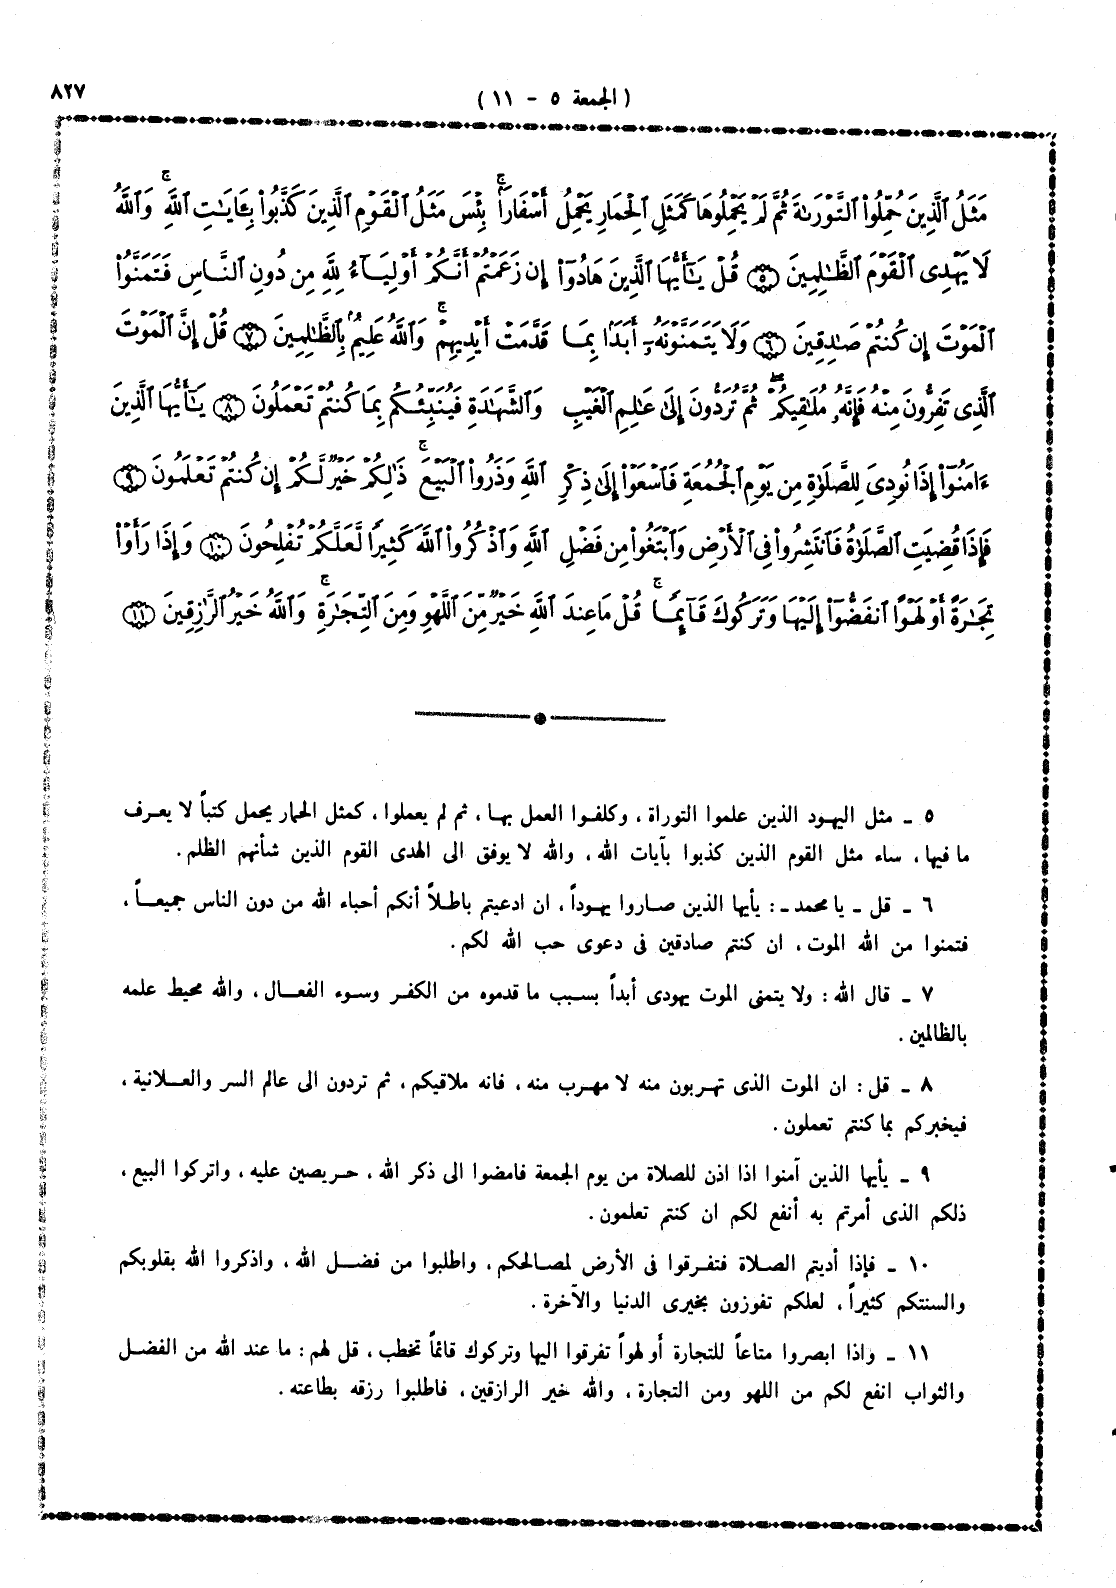 ( الجمعة ٥ - ١١ )
٨٢٧
مَثَلُ الَّذِينَ حُمِّلُوا۟ التَّوْرَىٰةَ ثُمَّ لَمْ يَحْمِلُوهَا كَمَثَلِ الْحِمَارِ يَحْمِلُ أَسْفَارًۢا ۚ بِئْسَ مَثَلُ الْقَوْمِ الَّذِينَ كَذَّبُوا۟ بِـَٔايَـٰتِ اللَّهِ ۚ وَاللَّهُ
لَا يَهْدِى الْقَوْمَ الظَّـٰلِمِينَ ﴿٥﴾ قُلْ يَـٰٓأَيُّهَا الَّذِينَ هَادُوٓا۟ إِن زَعَمْتُمْ أَنَّكُمْ أَوْلِيَآءُ لِلَّهِ مِن دُونِ النَّاسِ فَتَمَنَّوُا۟
الْمَوْتَ إِن كُنتُمْ صَـٰدِقِينَ ﴿٦﴾ وَلَا يَتَمَنَّوْنَهُۥٓ أَبَدًۢا بِمَا قَدَّمَتْ أَيْدِيهِمْ ۚ وَاللَّهُ عَلِيمٌۢ بِالظَّـٰلِمِينَ ﴿٧﴾ قُلْ إِنَّ الْمَوْتَ
الَّذِى تَفِرُّونَ مِنْهُ فَإِنَّهُۥ مُلَـٰقِيكُمْ ۖ ثُمَّ تُرَدُّونَ إِلَىٰ عَـٰلِمِ الْغَيْبِ وَالشَّهَـٰدَةِ فَيُنَبِّئُكُم بِمَا كُنتُمْ تَعْمَلُونَ ﴿٨﴾ يَـٰٓأَيُّهَا الَّذِينَ
ءَامَنُوٓا۟ إِذَا نُودِىَ لِلصَّلَوٰةِ مِن يَوْمِ الْجُمُعَةِ فَاسْعَوْا۟ إِلَىٰ ذِكْرِ اللَّهِ وَذَرُوا۟ الْبَيْعَ ۚ ذَٰلِكُمْ خَيْرٌ لَّكُمْ إِن كُنتُمْ تَعْلَمُونَ ﴿٩﴾
فَإِذَا قُضِيَتِ الصَّلَوٰةُ فَانتَشِرُوا۟ فِى الْأَرْضِ وَابْتَغُوا۟ مِن فَضْلِ اللَّهِ وَاذْكُرُوا۟ اللَّهَ كَثِيرًا لَّعَلَّكُمْ تُفْلِحُونَ ﴿١٠﴾ وَإِذَا رَأَوْا۟
تِجَـٰرَةً أَوْ لَهْوًا انفَضُّوٓا۟ إِلَيْهَا وَتَرَكُوكَ قَآئِمًا ۚ قُلْ مَا عِندَ اللَّهِ خَيْرٌ مِّنَ اللَّهْوِ وَمِنَ التِّجَـٰرَةِ ۚ وَاللَّهُ خَيْرُ الرَّٰزِقِينَ ﴿١١﴾
٥ ـ مثل اليهود الذين علموا التوراة ، وكلفوا العمل بها ، ثم لم يعملوا ، كمثل الحمار يحمل كتباً لا يعرف
ما فيها ، ساء مثل القوم الذين كذبوا بآيات الله ، والله لا يوفق الى الهدى القوم الذين شأنهم الظلم .
٦ ـ قل ـ يا محمد ـ : يأيها الذين صاروا يهوداً ، ان ادعيتم باطلاً أنكم أحباء الله من دون الناس جميعاً ،
فتمنوا من الله الموت ، ان كنتم صادقين فى دعوى حب الله لكم .
٧ ـ قال الله : ولا يتمنى الموت يهودى أبداً بسبب ما قدموه من الكفر وسوء الفعال ، والله محيط علمه
بالظالمين .
٨ ـ قل : ان الموت الذى تهربون منه لا مهرب منه ، فانه ملاقيكم ، ثم تردون الى عالم السر والعلانية ،
فيخبركم بما كنتم تعملون .
٩ ـ يأيها الذين آمنوا اذا اذن للصلاة من يوم الجمعة فامضوا الى ذكر الله ، حريصين عليه ، واتركوا البيع ،
ذلكم الذى أمرتم به أنفع لكم ان كنتم تعلمون .
١٠ ـ فإذا أديتم الصلاة فتفرقوا فى الأرض لمصالحكم ، واطلبوا من فضل الله ، واذكروا الله بقلوبكم
والسنتكم كثيراً ، لعلكم تفوزون بخيرى الدنيا والآخرة .
١١ ـ واذا ابصروا متاعاً للتجارة أو لهواً تفرقوا اليها وتركوك قائماً تخطب ، قل لهم : ما عند الله من الفضل
والثواب انفع لكم من اللهو ومن التجارة ، والله خير الرازقين ، فاطلبوا رزقه بطاعته .